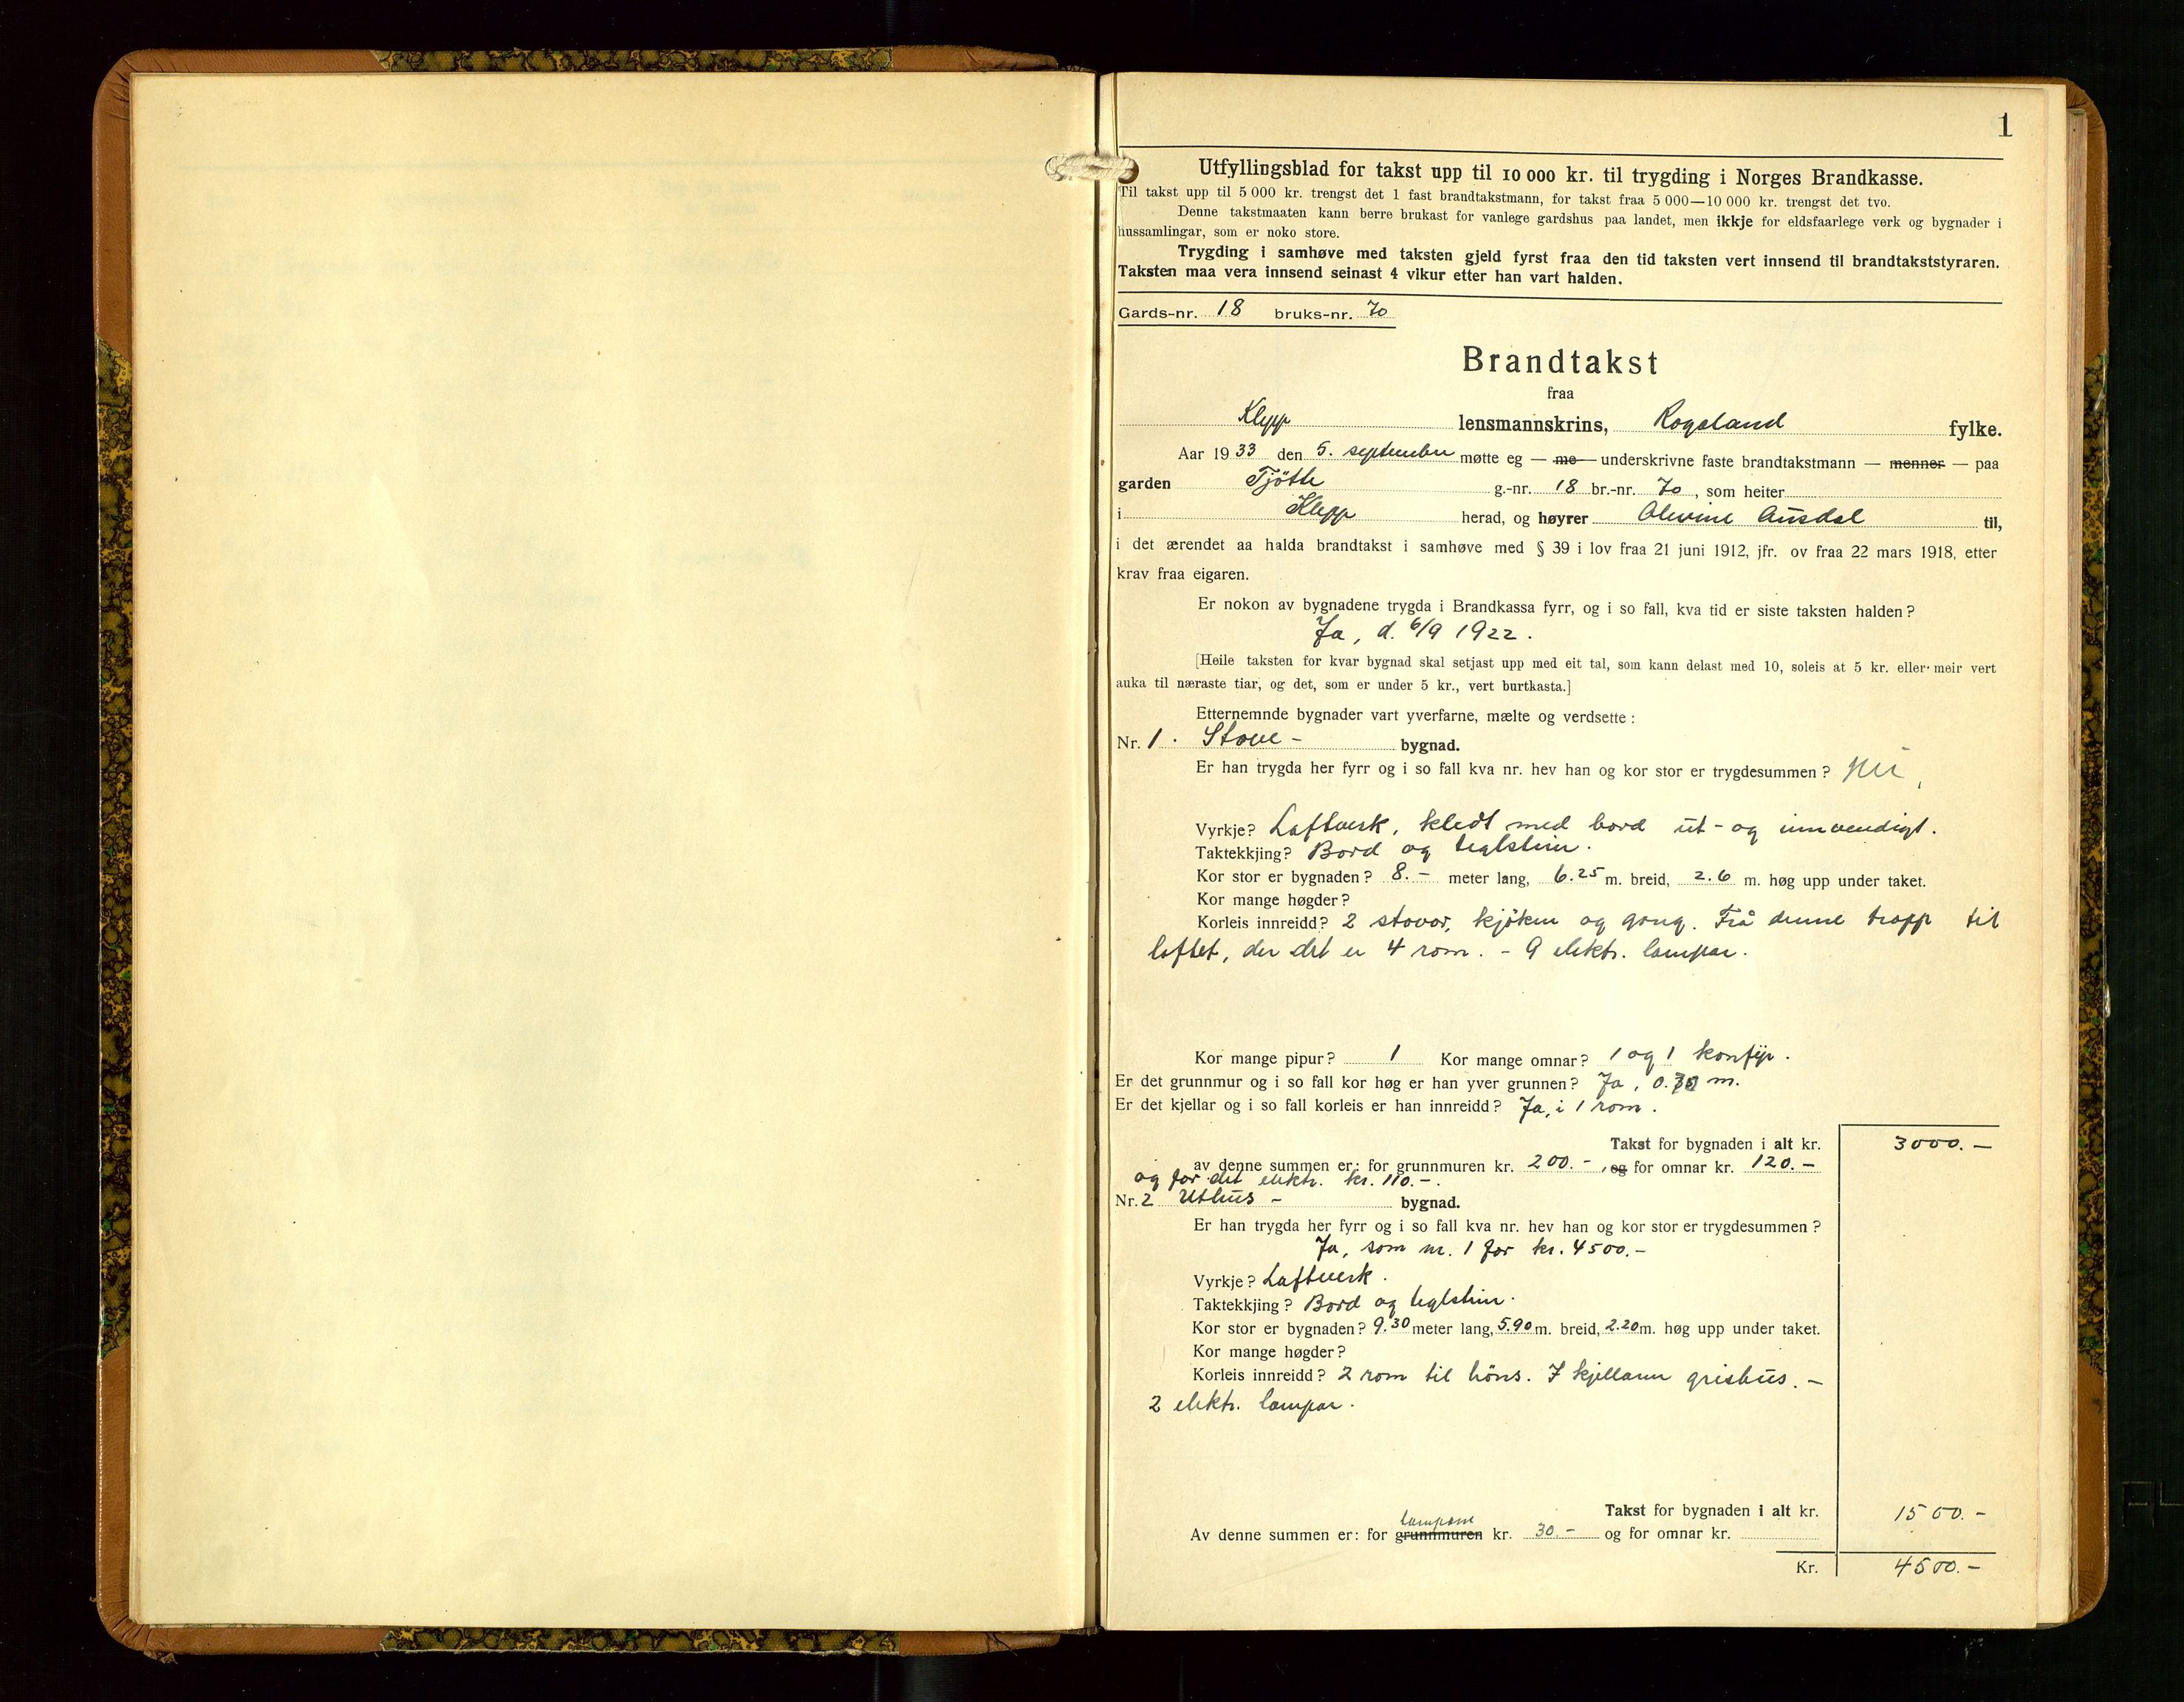 1
Utfyllingsblad for takst upp til 10 000 kr. til trygding i Norges Brandkasse.
Til takst upp til 5 000 kr. trengst det 1 fast brandtakstmann, for takst fraa 5 000—10 000 kr. trengst det tvo.
Denne takstmaaten kann berre brukast for vanlege gardshus paa landet, men ikkje for eldsfaarlege verk og bygnader i
hussamlingar, som er noko store.
Trygding i samhøve med taksten gjeld fyrst fraa den tid taksten vert innsend til brandtakststyraren.
Taksten maa vera innsend seinast 4 vikur etter han vart halden.
Gards-nr. 18 bruks-nr. 70
Brandtakst
fraa
Klepp lensmannskrins, Rogaland fylke.
Aar 1933 den 5. september møtte eg — me — underskrivne faste brandtakstmann — menner — paa
garden Tjøtta g.-nr. 18 br.-nr. 70, som heiter
i Klepp herad, og høyrer Olevine Ausdal til,
i det ærendet aa halda brandtakst i samhøve med § 39 i lov fraa 21 juni 1912, jfr. ov fraa 22 mars 1918, etter
krav fraa eigaren.
Er nokon av bygnadene trygda i Brandkassa fyrr, og i so fall, kva tid er siste taksten halden?
Ja, d. 6/9 1922.
[Heile taksten for kvar bygnad skal setjast upp med eit tal, som kann delast med 10, soleis at 5 kr. eller meir vert
auka til næraste tiar, og det, som er under 5 kr., vert burtkasta.]
Etternemnde bygnader vart yverfarne, mælte og verdsette:
Nr. 1. Stove- bygnad.
Er han trygda her fyrr og i so fall kva nr. hev han og kor stor er trygdesummen? Nei,
Vyrkje? Laftverk, kledt med bord ut- og innvendigt.
Taktekkjing? Bord og teglstein.
Kor stor er bygnaden? 8.- meter lang, 6.25 m. breid, 2.6 m. høg upp under taket.
Kor mange høgder?
Korleis innreidd? 2 stovor, kjøken og gong. Frå denne tropp til
loftet, der det er 4 rom. - 9 elektr. lampar.
Kor mange pipur? 1 Kor mange omnar? 1 og 1 komfyr.
Er det grunnmur og i so fall kor høg er han yver grunnen? Ja, 0. m.
Er det kjellar og i so fall korleis er han innreidd? Ja, i 1 rom.
Takst for bygnaden i alt kr. 3000.-
av denne summen er: for grunnmuren kr. 200.-, og for omnar kr. 120.-
og for det elektr. kr. 110.-.
Nr. 2 Uthus- bygnad.
Er han trygda her fyrr og i so fall kva nr. hev han og kor stor er trygdesummen?
Ja, som nr. 1 for kr. 4500.-
Vyrkje? Laftverk.
Taktekkjing? Bord og teglstein.
Kor stor er bygnaden? 9.30 meter lang, 5.90 m. breid, 2.20 m. høg upp under taket.
Kor mange høgder?
Korleis innreidd? 2 rom til høns. I kjellaren grishus. -
2 elektr. lampar.
Takst for bygnaden i alt kr. 1500.-
lampane
Av denne summen er: for grunnmuren kr. 30.- og for omnar kr.
Kr. 4500.-